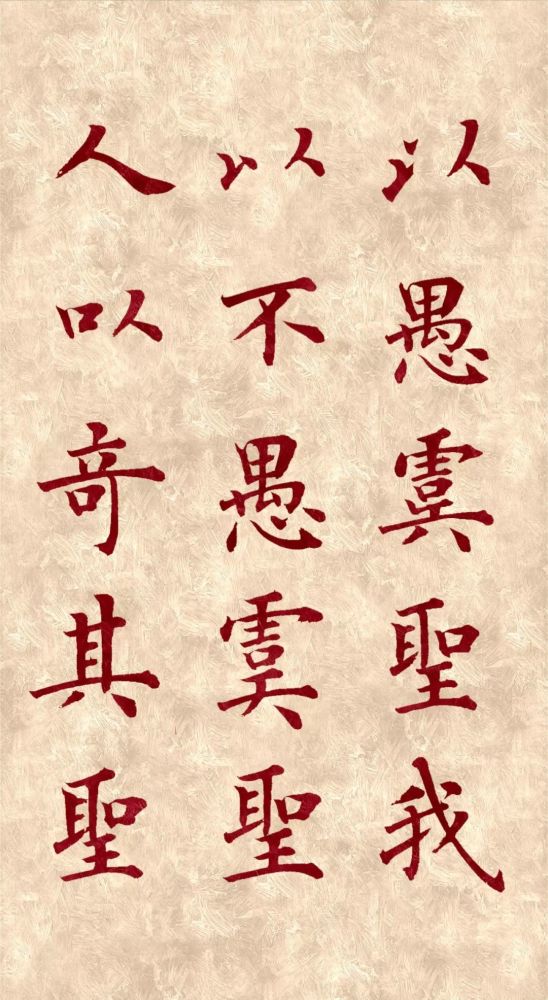 以愚虞聖我
以不愚虞聖
人以竒其聖